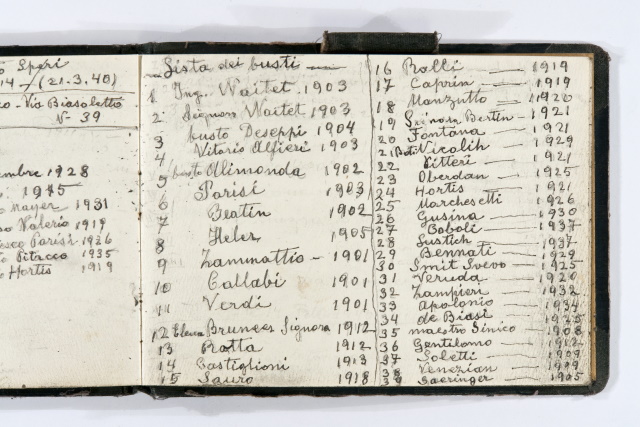 Speri
14 - (21.3.40)
Via Biasoletto
N- 39
embre 1928
1915
Mayer 1931
so Valerio 1919
esco Parisi 1926
Pitacco 1935
Hortis 1919
Lista dei busti
1 Ing. Waitet 1903
2 Signora Waitet 1903
3 busto Deseppi 1904
4 Vitorio Alfieri 1903
5 busto Alimonda 1902
6 Parisi 1903
7 Beatin 1902
8 Heler 1905
9 Zammattio - 1901
10 Callabi 1901
11 Verdi 1901
12 Elena Brunees Signora 1912
13 Ratta 1912
14 Castiglioni 1913
15 Sauro 1918
16 Ralli 1919
17 Caprin 1919
18 Manzutto 1920
19 Signora Bertin 1921
20 Fontana 1921
21 Nicolih 1929
22 Vitteri 1921
23 Oberdan 1925
24 Hortis 1921
25 Marchesetti 1926
26 Gusina 1930
27 Boboli 1937
28 Sustich 1937
29 Bennati 1929
30 Smit Svevo 1925
31 Veruda 1920
32 Zampieri 1932
33 Apolonio 1934
34 de Biasi 1925
35 maestro Sinico 1908
36 Gentilomo 1912
37 Soletti 1909
38 Venezian 1909
39 Saeringer 1905